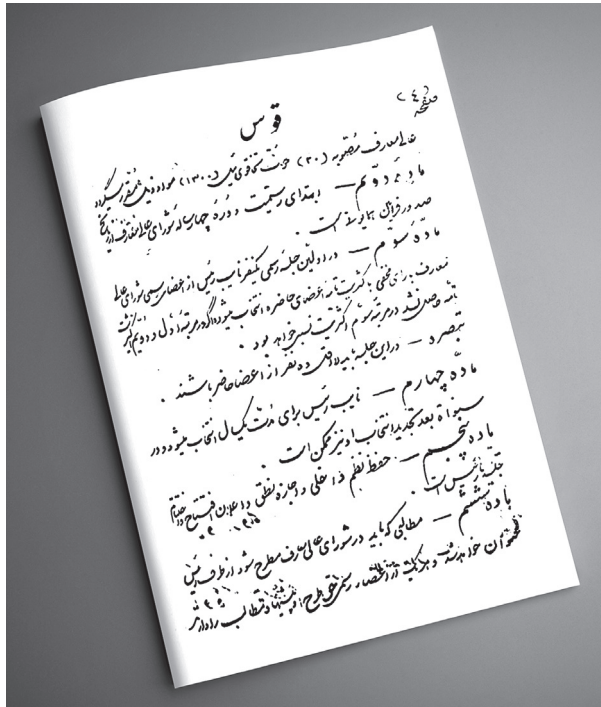 صفحه (٢٤)
قوس
عالی معارف مصوبه (٣٠) حوت تخاقوی ئیل (١٣٠٠) مواد ذیل مقرر میگردد
مادهٔ دویم — ابتدای رسمیت و دورهٔ چهار ساله شورای عالی معارف از تاریخ
صدور فرمان همایونی است .
مادهٔ سوم — در اولین جلسه رسمی یکنفر نایب رئیس از اعضای رسمی شورای عالی
معارف برای مخفی باکثریت تامه اعضای حاضره انتخاب میشود و اگر در مرتبه اول و دویم اکثریت
تامه حاصل نشد در مرتبه سوم اکثریت نسبی خواهد بود .
تبصره — در این جلسه باید لااقل ده نفر از اعضا حاضر باشند .
مادهٔ چهارم — نایب رئیس برای مدت یکسال انتخاب میشود و در
سنواة بعد تجدید انتخاب او نیز ممکن است .
مادهٔ پنجم — حفظ نظم داخلی و اجازه نطق و اعلان افتتاح و اختتام
جلسه با رئیس است .
مادهٔ ششم — مطالبی که باید در شورای عالی معارف مطرح شود از طرف رئیس
خواهد شد و هر یک از اعضاء رسمی حق طرح و پیشنهاد مطالب را دارند